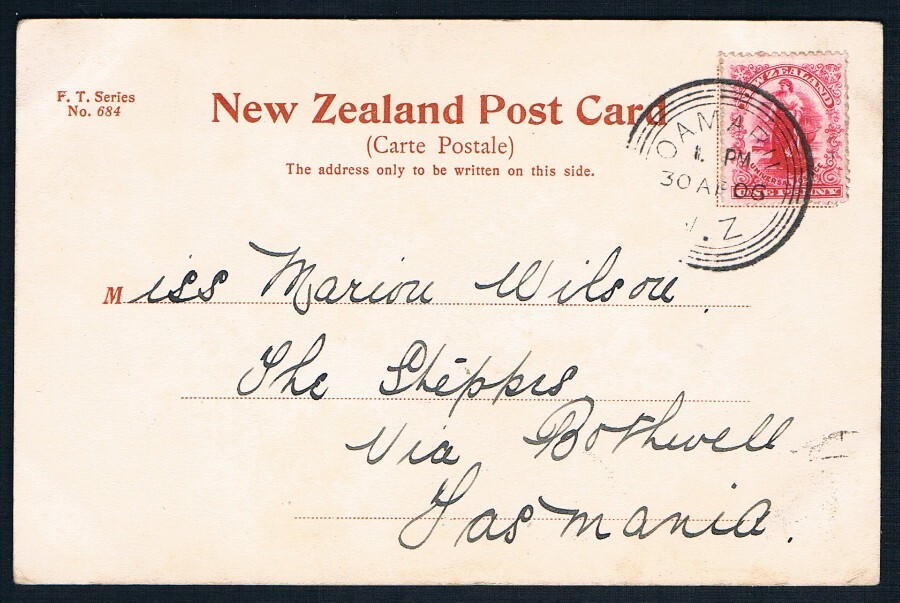 F. T. Series
No. 684
New Zealand Post Card
(Carte Postale)
The address only to be written on this side.
NEW ZEALAND
UNIVERSAL
ONE PENNY
OAMARU
1. PM
30 AP 06
N.Z
Miss Marion Wilson.
The Steppes
Via Bothwell
Tasmania.